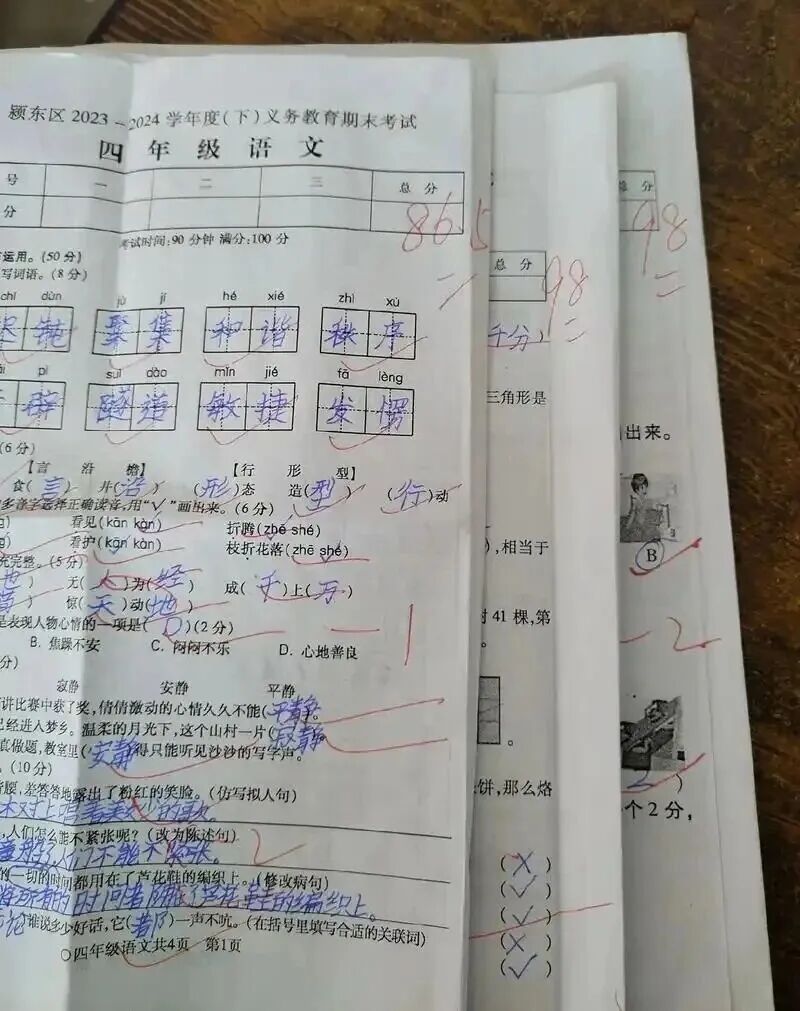 颍东区2023-2024学年度(下)义务教育期末考试
四年级语文
号 一 二 三 总分
分 86.5
考试时间:90分钟 满分:100分
运用。(50分)
写词语。(8分)
chí dùn jù jí hé xié zhì xù
迟钝 聚集 和谐 秩序
pì suì dào mǐn jié fā lèng
僻 隧道 敏捷 发愣
(6分)
【言 沿 檐】 【行 形 型】
食(言) 井(沿) (形)态 造(型) (行)动
多音字选择正确读音,用“√”画出来。(6分)
看见(kān kàn) 折腾(zhē shé)
看护(kān kàn) 枝折花落(zhē shé)
充完整。(5分)
无(人)为(经) 成(千)上(万)
惊(天)动(地)
是表现人物心情的一项是(D)(2分)
-1
B. 焦躁不安 C. 闷闷不乐 D. 心地善良
分)
寂静 安静 平静
讲比赛中获了奖,倩倩激动的心情久久不能(平静)。
已经进入梦乡。温柔的月光下,这个山村一片(寂静
真做题,教室里(安静得只能听见沙沙的写字声。
(10分)
腰,羞答答地露出了粉红的笑脸。(仿写拟人句)
,人们怎么能不紧张呢?(改为陈述句)
人们不能不紧张。
的一切的时间都用在了芦花鞋的编织上。(修改病句)
所有的时间都用在了芦花鞋的编织上。
论谁说多少好话,它(都)一声不吭。(在括号里填写合适的关联词)
四年级语文共4页 第1页
总分
98
千分)
三角形是
,相当于
41棵,第
饼,那么烙
(×)
(√)
(√)
(×)
(√)
总分
98
出来。
B
-2
个2分,